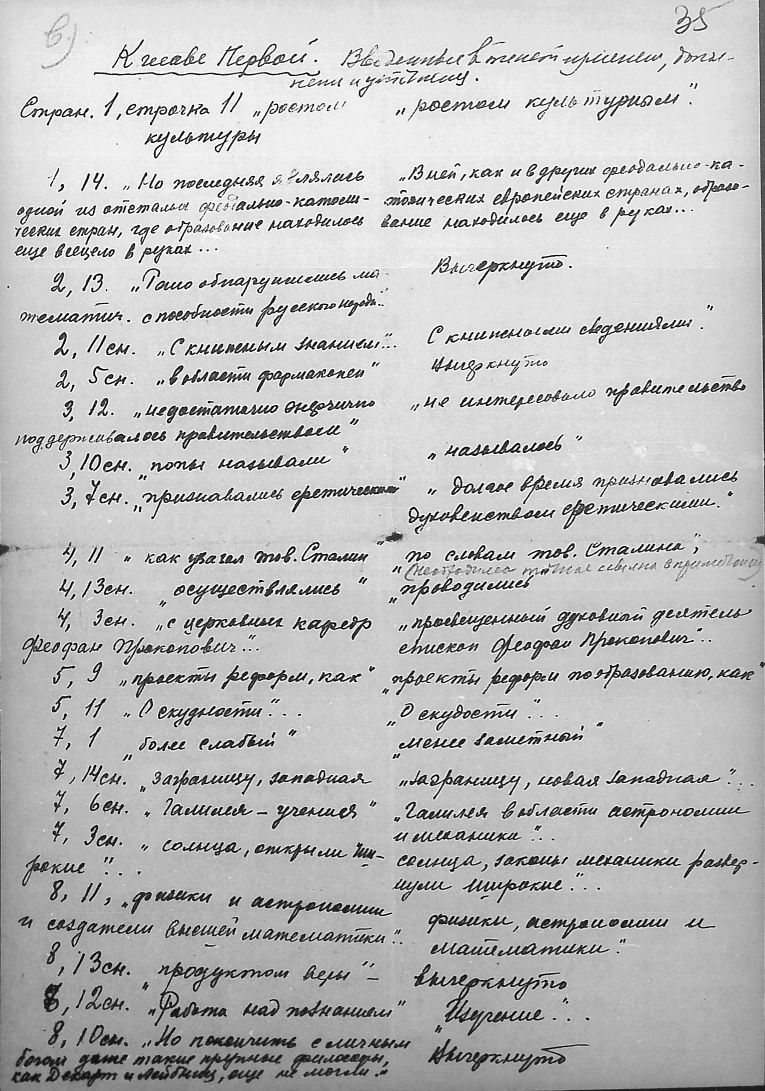 в)
35
К главе Первой. Введенные в текст изменен, допол-
нени и уточнени.
Стран. 1, строчка 11 „ростом „ростом культурным".
культуры
1, 14. „Но последняя являлась „В ней, как и в других феодально-ка-
одной из отсталых феодально-католи- толических европейских странах, образо-
ческих стран, где образование находилось вание находилось еще в руках...
еще всецело в руках...
2, 13. „Рано обнаружились ма- Вычеркнуто.
тематич. способности русского народа".
2, 11сн. „С книжным знанием"... С книжными сведениями".
2, 5сн. „в области фармакопеи" Вычеркнуто
3, 12. „недостаточно энергично „не интересовало правительство
поддерживалось правительством"
3, 10сн. „попы называли" „называлось"
3, 7сн. „признавались еретическими" „долгое время признавались
духовенством еретическими."
4, 11 „как указал тов. Сталин" „по словам тов. Сталина",
(необходима точная ссылка в примечании)
4, 13сн. „осуществлялись" „проводились"
4, 3сн. „с церковных кафедр „просвещенный духовный деятель
Феофан Прокопович"... епископ Феофан Прокопович"..
5, 9 „проекты реформ, как" „проекты реформ по образованию, как"
5, 11 „О скудности"... „О скудости"...
7, 1 „более слабый" „менее заметный"
7, 14сн. „заграницу, западная „заграницу, новая западная"...
7, 6сн. „Галилея – учения" „Галилея в области астрономии
и механики"...
7, 3сн. „солнца, открыли ши- солнца, законы механики развер-
рокие"... нули широкие"...
8, 11, „физики и астрономии физики, астрономии и
и создатели высшей математики".. математики".
8, 13сн. „продуктом веры" – вычеркнуто
8, 12сн. „Работа над познанием" „Изучение"...
8, 10сн. „Но покончить с личным Вычеркнуто
богом даже такие крупные философы,
как Декарт и Лейбниц, еще не могли."